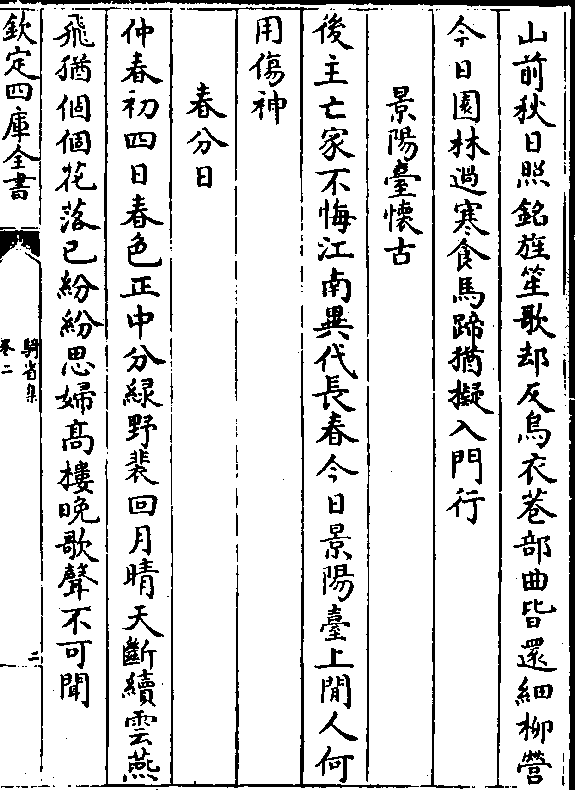 山前秋日照銘旌笙歌却反烏衣巷部曲皆還細柳營
今日園林過寒食馬蹄猶擬入門行
景陽臺懷古
後主亡家不悔江南異代長春今日景陽臺上閒人何
用傷神
春分日
仲春初四日春色正中分綠野裴回月晴天斷續雲燕
飛猶個個花落已紛紛思婦高樓晚歌聲不可聞
欽定四庫全書
騎省集
卷二
二